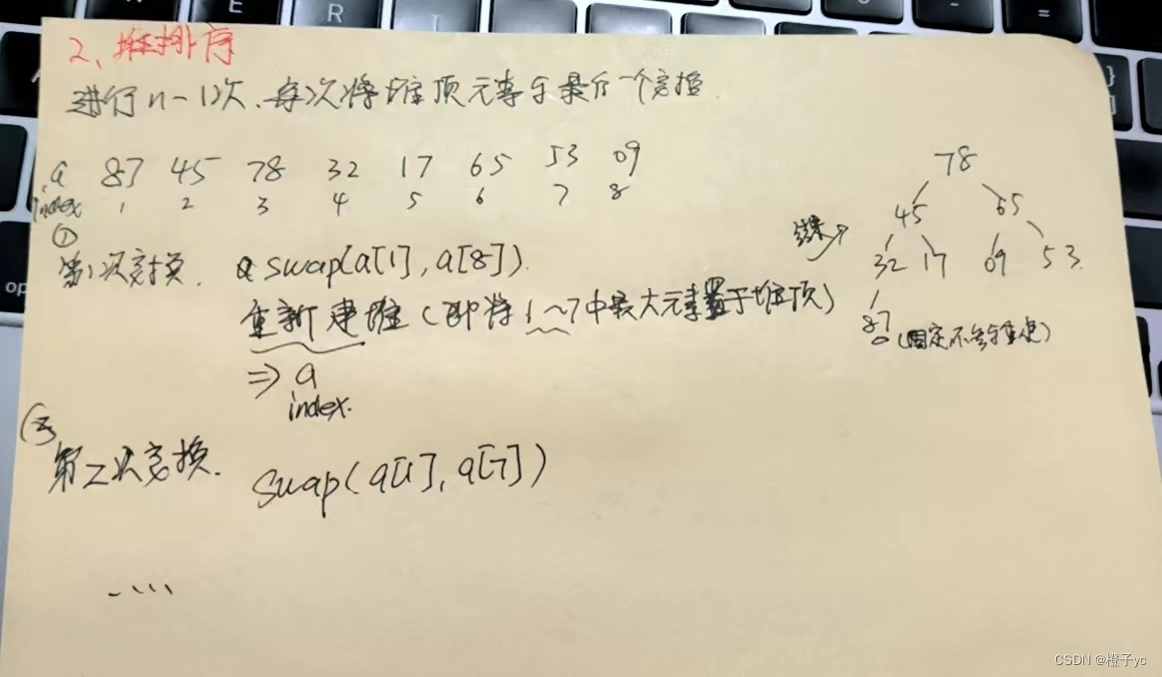 2、堆排序
进行n-1次、每次将堆顶元素与最后一个交换.
a 87 45 78 32 17 65 53 09
index 1 2 3 4 5 6 7 8
①
第1次交换. swap(a[1], a[8]).
重新建堆(即将1~7中最大元素置于堆顶)
⇒ a
index.
结果
78
45 65
32 17 09 53.
87
(固定不参与重建)
②
第二次交换. swap(a[1], a[7])
.....
CSDN @橙子yc